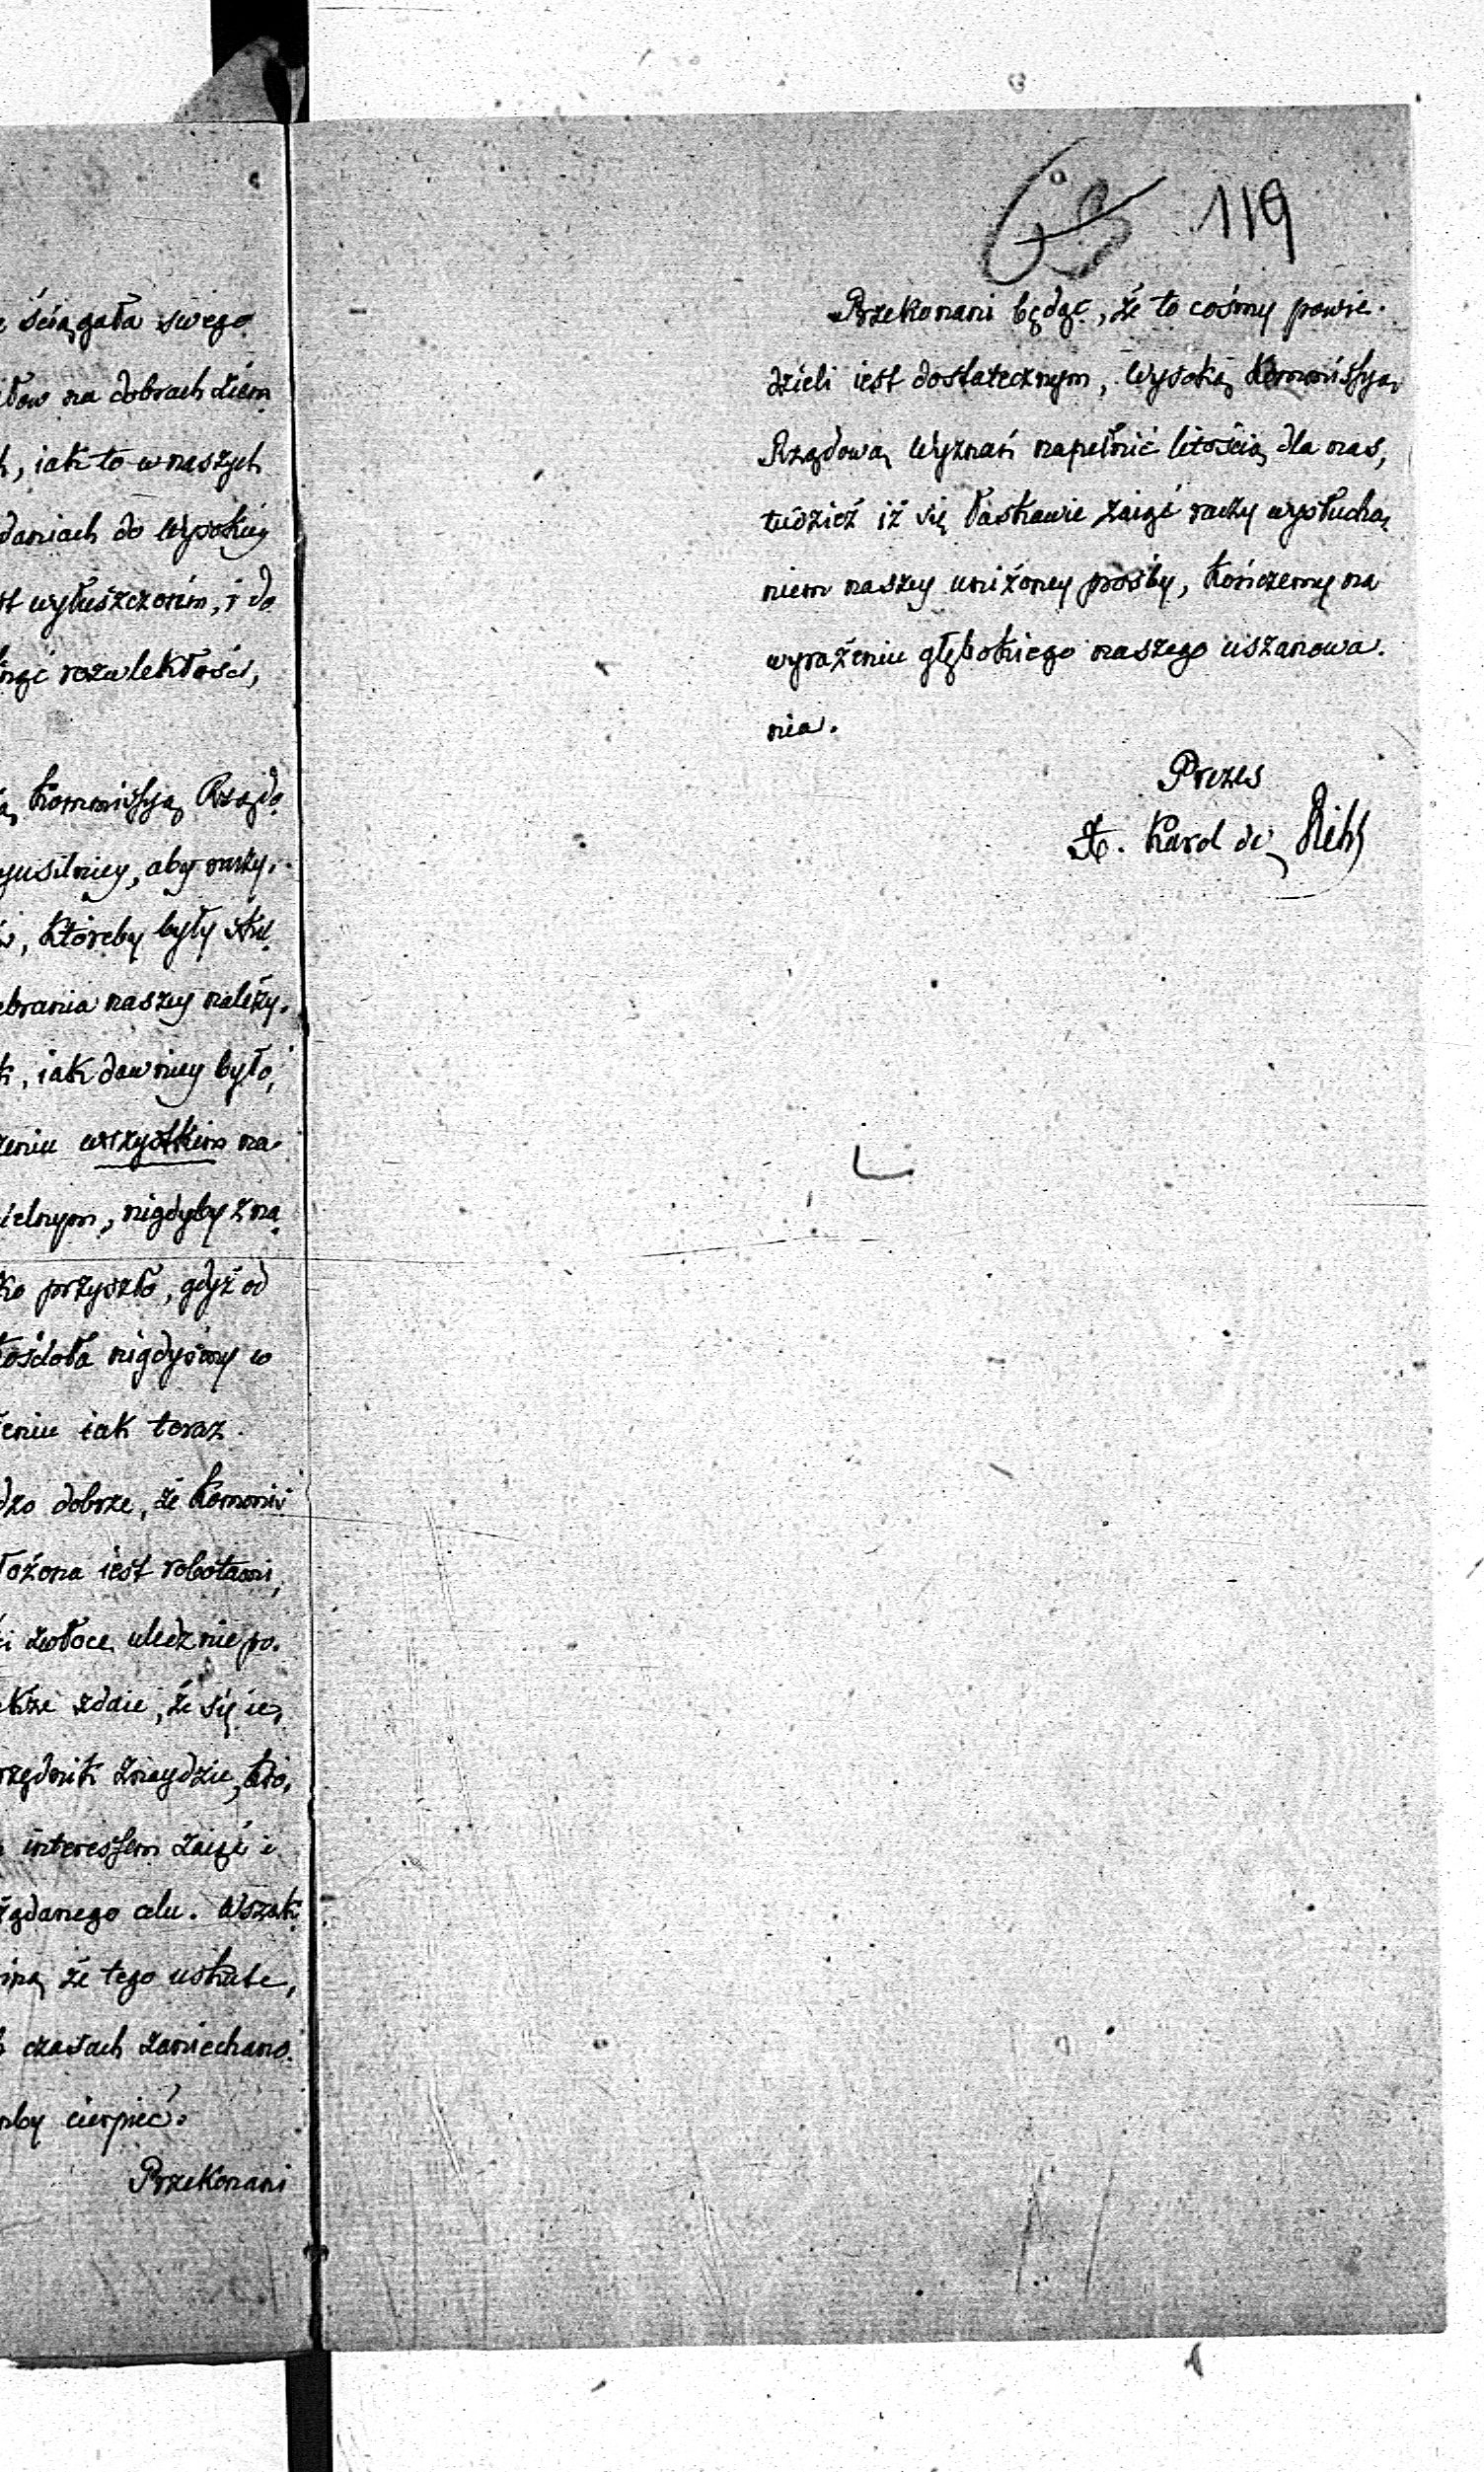 ściągała swego
na dobrach ziem
, iak to w naszych
daniach do Wysokiéy
wyłuszczonem, i do
rozwlekłości,
Kommissyą Rządo
usilniey, aby raczy.
, któreby były sku
ebrania naszey należy.
, iak dawniey było,
eniu wszystkim na
ielnym, nigdyby z na
ko przyszło, gdyż od
nigdyśmy w
eniu iak teraz.
dzo dobrze, że Kommis
łożona iest robotami,
zwłoce uledz nie po.
kże zdaie, że się ie,
rzędnik znaydzie, któ,
interessem zaiąć i
żądanego celu. Wszak
że tego uskute,
czasach zaniechano.
by cierpieć.
Przekonani
63 119
Przekonani będąc, że to cośmy powie.
dzieli iest dostatecznym, Wysoką Kommissyą
Rządową Wyznań napełnić litością dla nas,
tudzież iż się łaskawie zaiąć raczy wysłucha,
niem naszey uniżoney prośby, kończemy na
wyrażeniu głębokiego naszego uszanowa.
nia.
Prezes
Karol de